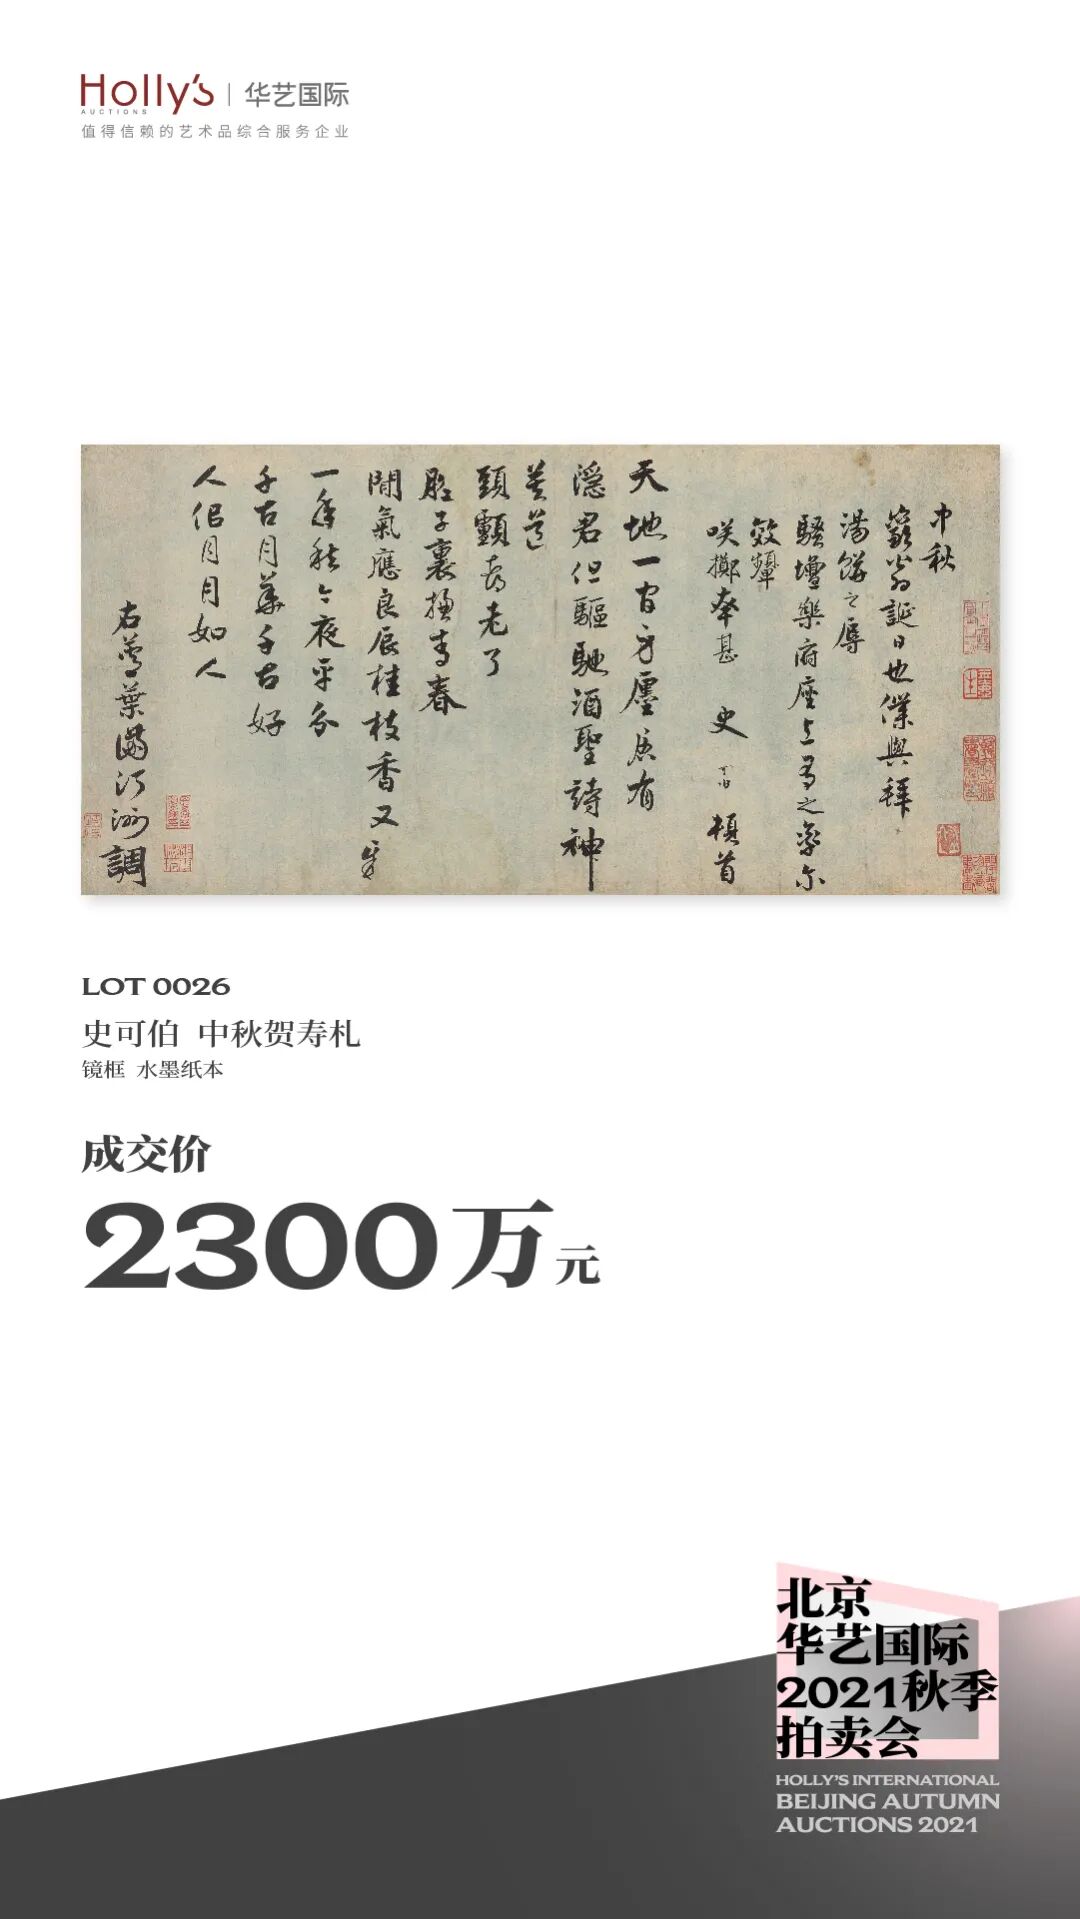 Holly's | 华艺国际
AUCTIONS
值得信赖的艺术品综合服务企业
中秋
翁誕日也僕與拜
湯餅之辱
騷壇樂府座上
效顰
咲擲幸甚 史 頓首
天地一
隠君但驅馳酒聖詩神
莫道
頭顱老了
裏青春
閒氣應良辰桂枝香又
一年秋今夜平分
千古月華千古好
人侶月月如人
右葉滿汀洲調
LOT 0026
史可伯 中秋贺寿札
镜框 水墨纸本
成交价
2300万元
北京
华艺国际
2021秋季
拍卖会
HOLLY'S INTERNATIONAL
BEIJING AUTUMN
AUCTIONS 2021